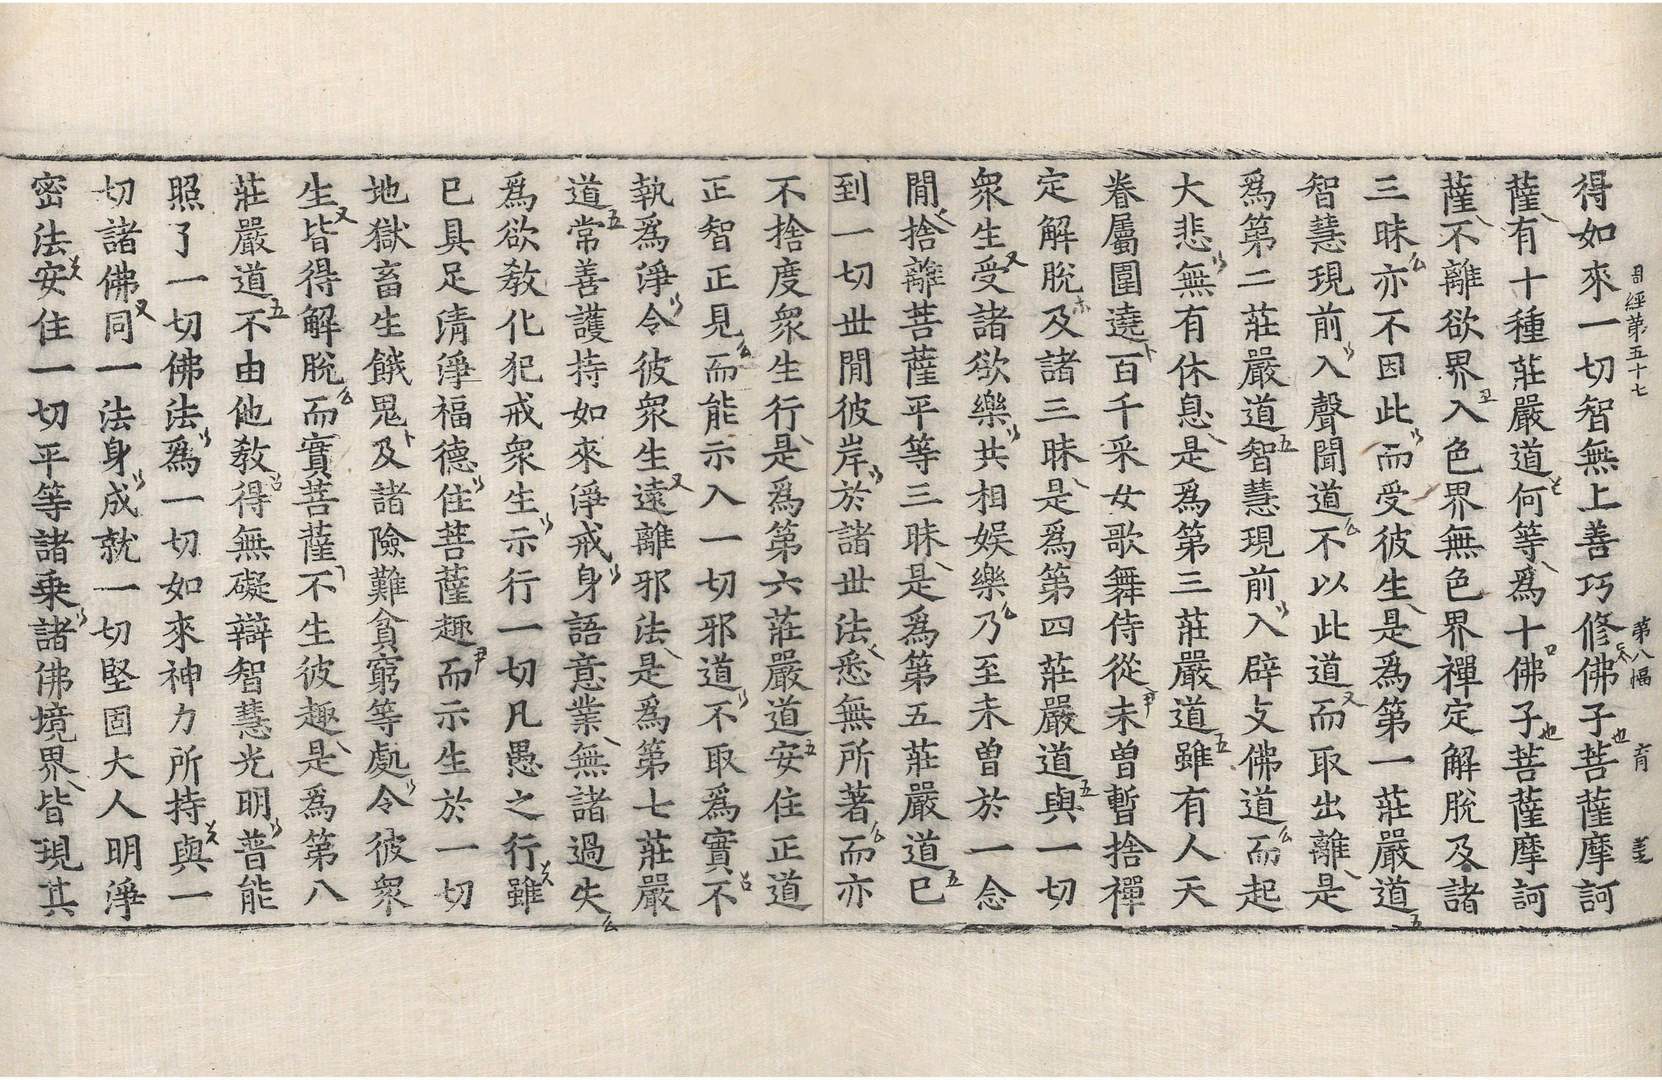 周經第五十七 第八幅 育
得如來一切智無上善巧修佛子菩薩摩訶
薩有十種莊嚴道何等爲十佛子菩薩摩訶
薩不離欲界入色界無色界禪定解脫及諸
三昧亦不因此而受彼生是爲第一莊嚴道
智慧現前入聲聞道不以此道而取出離是
爲第二莊嚴道智慧現前入辟支佛道而起
大悲無有休息是爲第三莊嚴道雖有人天
眷屬圍遶百千采女歌舞侍從未曾暫捨禪
定解脫及諸三昧是爲第四莊嚴道與一切
衆生受諸欲樂共相娛樂乃至未曾於一念
閒捨離菩薩平等三昧是爲第五莊嚴道已
到一切世閒彼岸於諸世法悉無所著而亦
不捨度衆生行是爲第六莊嚴道安住正道
正智正見而能示入一切邪道不取爲實不
執爲淨令彼衆生遠離邪法是爲第七莊嚴
道常善護持如來淨戒身語意業無諸過失
爲欲教化犯戒衆生示行一切凡愚之行雖
已具足清淨福德住菩薩趣而示生於一切
地獄畜生餓鬼及諸險難貧窮等處令彼衆
生皆得解脫而實菩薩不生彼趣是爲第八
莊嚴道不由他教得無礙辯智慧光明普能
照了一切佛法爲一切如來神力所持與一
切諸佛同一法身成就一切堅固大人明淨
密法安住一切平等諸乘諸佛境界皆現其